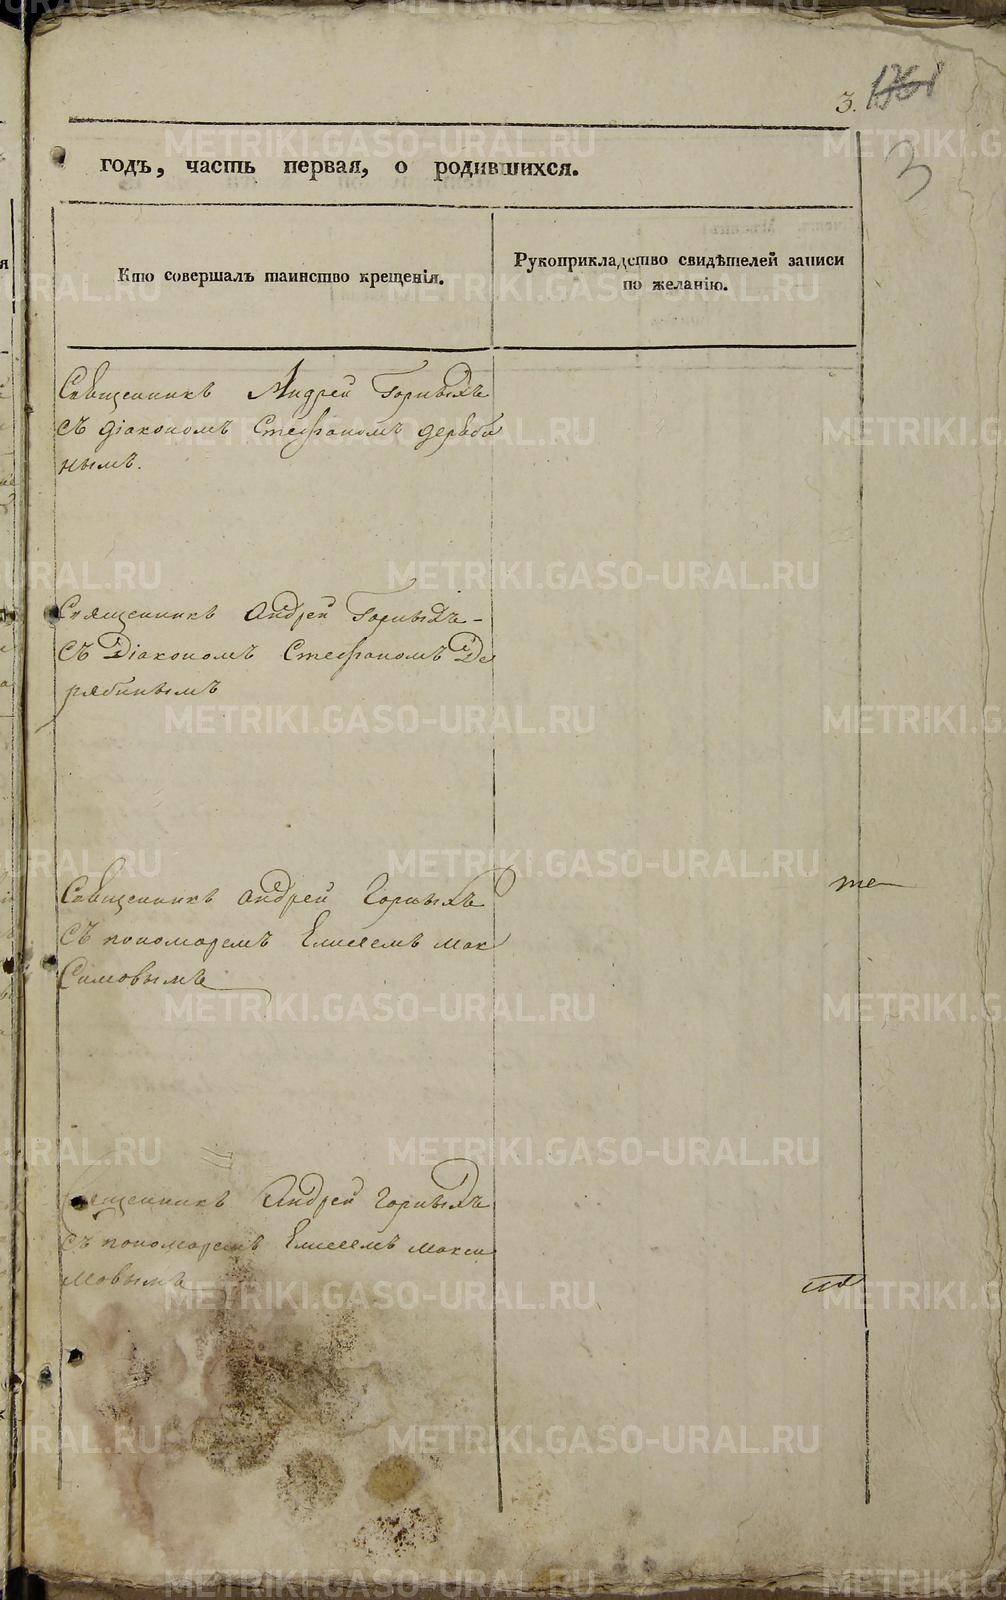 3.
3
годъ, часть первая, о родившихся.
Кто совершалъ таинство крещенія.
Рукоприкладство свидѣтелей записи
по желанію.
Священникъ Андрей Горныхъ
съ діакономъ Стефаномъ деряби
нымъ.
Священникъ Андрей Горныхъ
съ Діакономъ Стефаномъ Де
рябинымъ
Священникъ Андрей Горныхъ
съ пономаремъ Елисеемъ Мак
симовымъ
Священникъ Андрей Горныхъ
съ пономаремъ Елисеемъ Макси
мовымъ
METRIKI.GASO-URAL.RU